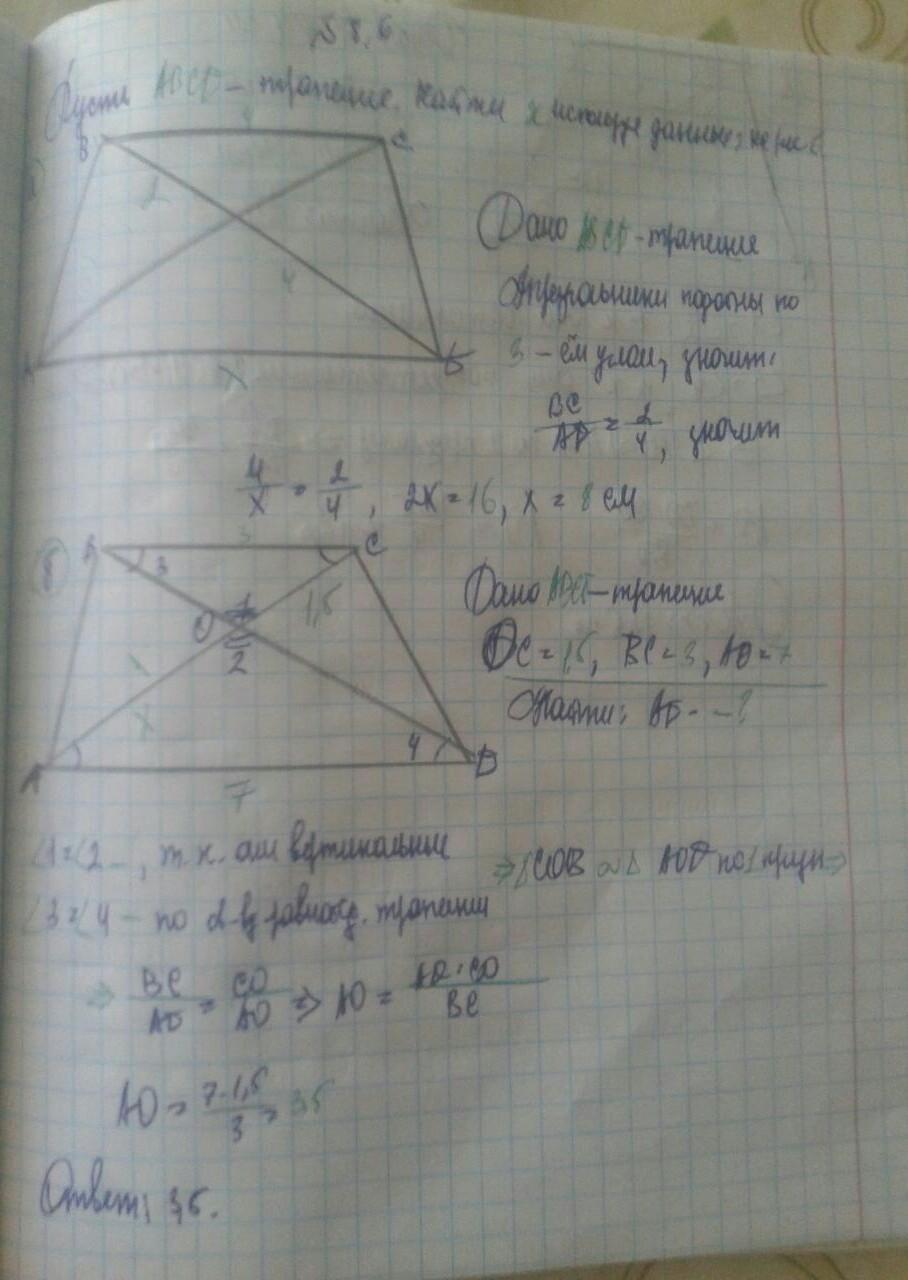 8.6
Пусть ABCD – трапеция. Найти x используя данные на рис.
B C
2
4
A D
x
Дано ABCD - трапеция
Треугольники подобны по
3 - ём углам, значит:
BC/AD = 2/4, значит
4/x = 2/4, 2x = 16, x = 8 см
б B 3 C
3
O 1 1,5
2
x
4
A D
7
Дано ABCD – трапеция
OC = 1,5, BC = 3, AD = 7
Найти: - ?
∠1 = ∠2 – , т.к. они вертикальные
⇒ △COB ∼ △ AOD по 1 ⇒
∠3 = ∠4 – по трапеции
⇒ BC/AD = CO/AO ⇒ AO = AD·CO/BC
AO = 7·1,5/3 = 3,5
Ответ: 3,5.